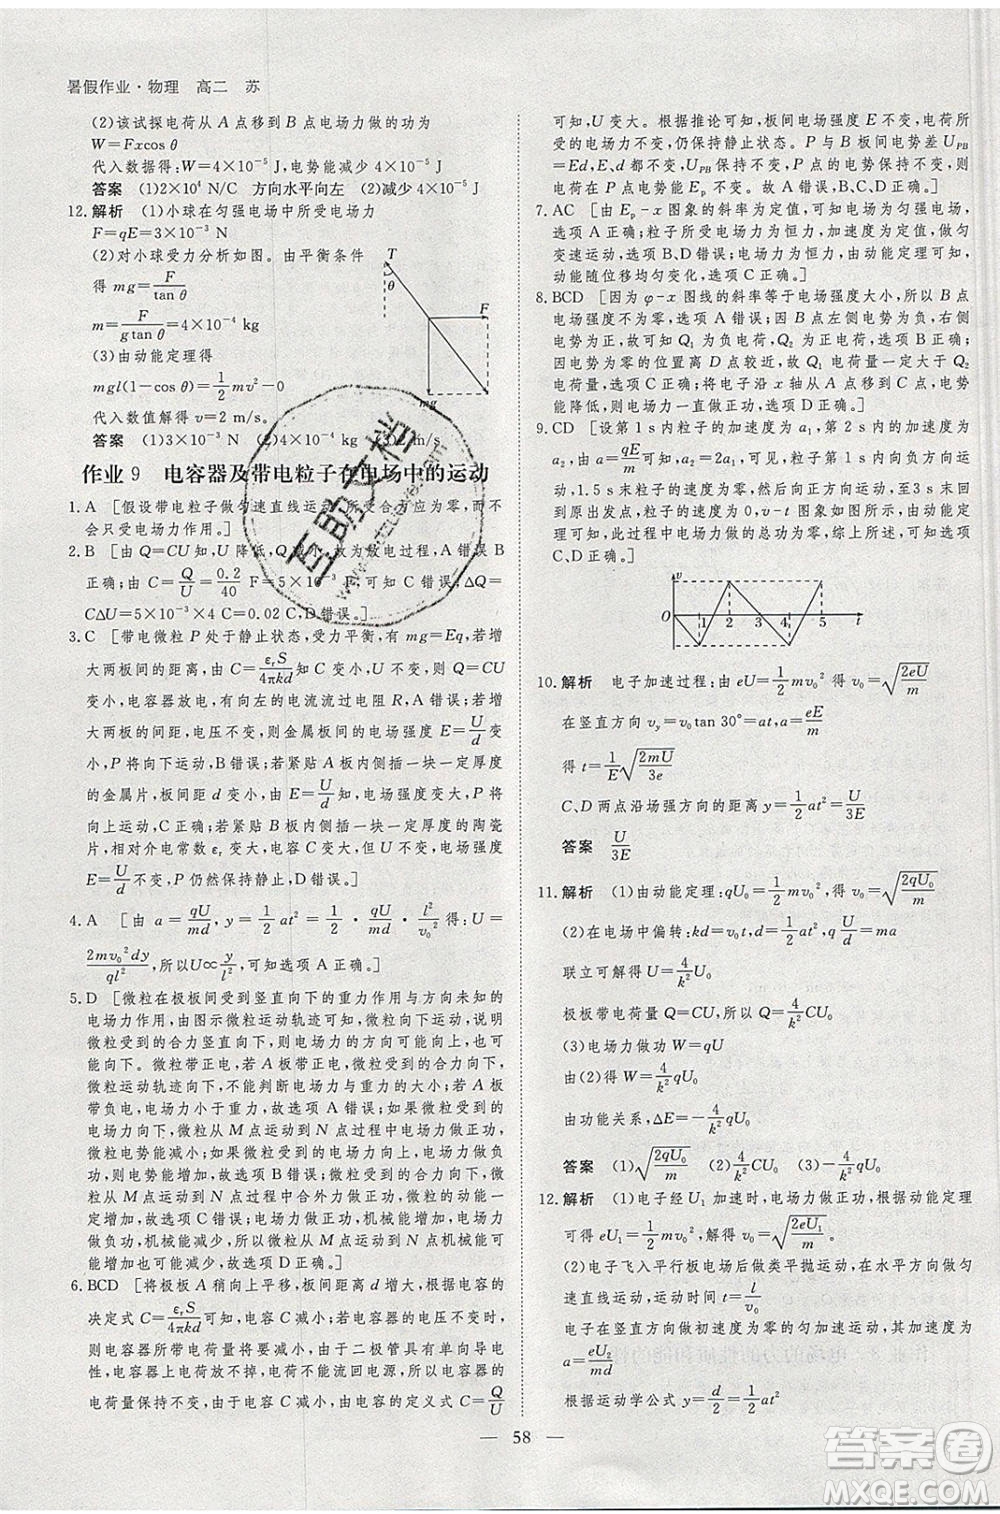 暑假作业·物理　高二　苏
(2)该试探电荷从 A 点移到 B 点电场力做的功为
W=Fxcosθ
代入数据得:W=4×10⁻⁵ J,电势能减少 4×10⁻⁵ J
答案　(1)2×10⁴ N/C　方向水平向左　(2)减少 4×10⁻⁵ J
12.解析　(1)小球在匀强电场中所受电场力
F=qE=3×10⁻³ N
(2)对小球受力分析如图。由平衡条件
得 mg=F/tanθ
m=F/(gtanθ)=4×10⁻⁴ kg
(3)由动能定理得
mgl(1-cosθ)=1/2 mv²-0
代入数值解得 v=2 m/s。
答案　(1)3×10⁻³ N　(2)4×10⁻⁴ kg　(3)2 m/s。
T
θ
F
mg
作业 9　电容器及带电粒子在电场中的运动
1.A　[假设带电粒子做匀速直线运动,所受合力应为零,而不
会只受电场力作用。]
2.B　[由 Q=CU 知,U 变小,Q 变小,故为放电过程,A 错误,B
正确;由 C=Q/U=0.2/40 F=5×10⁻³ F,C 错误;ΔQ=
CΔU=5×10⁻³×4 C=0.02 C,D 错误。]
3.C　[带电微粒 P 处于静止状态,受力平衡,有 mg=Eq,若增
大两板间的距离,由 C=εᵣS/4πkd 知 C 变小,U 不变,则 Q=CU
变小,电容器放电,有向左的电流流过电阻 R,A 错误;若增
大两板的间距,电压不变,则两板间电场强度 E=U/d 变小,
微粒所受电场力变小,P 将向下运动,B 错误;若紧贴 A 板内侧插入一块一定厚度
的金属片,相当于 d 变小,由 E=U/d 知,电场强度变大,P 将
向上运动,C 正确;若紧贴 B 板内侧插入一块一定厚度的陶瓷
片,相对介电常数 εᵣ 变大,电容 C 变大,但电场强度 E=
U/d 不变,P 仍然保持静止,D 错误。]
4.A　[由 a=qU/md,y=1/2 at²=1/2·qU/md·l²/v₀² 得:U=
2mv₀²dy/ql²,所以U∝y/l²,可知选项 A 正确。]
5.D　[微粒在极板间受到竖直向下的重力作用与方向未知的
电场力作用,由图示微粒运动轨迹可知,微粒向下运动,说明
微粒受到的合力竖直向下,电场力的方向可能向上也可能向下;若
微粒带正电,若 A 板带正电,微粒受到的合力向下,微粒运
动轨迹向下,A 板带负电,如果电场力小于重力,微粒运动轨迹向下,则不能判断电场力与重力的大小关系;若 A 板
带负电,电场力向上且小于重力,故选项 A 错误;如果微粒
受到的电场力向下,微粒从 M 点运动到 N 点电场力做正功,
微粒电势能减少,如果微粒受到的电场力向上,则电场力做负
功,则电势能增加,故选项 B 错误;微粒受到的合力向下,微
粒从 M 点运动到 N 点过程中合外力做正功,微粒的动能一定
增加,故选项 C 错误;电场力可能做正功,也可能做负功,则
微粒从 M 点运动到 N 点过程中,其电势能与动能之和可能
增加,也可能减少,故选项 D 正确。]
6.BCD　[将极板 A 稍向上平移,板间距离 d 增大,根据电容的
决定式 C=εᵣS/4πkd得知,电容 C 减小;而电容器的电压不变,
则电容器上电荷量将要减小,由于二极管具有单向导电性,
电容器上电荷不能流回电源,所以电容器的电
荷量 Q 保持不变;由于电容 C 减小,由电容的定义式 C=Q/U
可知,U 变大。根据推论可知,板间电场强度 E 不变,电荷
所受的电场力不变,仍保持静止状态。P 与 B 板电势差 U_PB
=Ed,E、d 都不变,U_PB 保持不变,P 点的电势保持不变,则
电荷在 P 点电势能 Eₚ 不变。故 A 错误,B、C、D 正确。]
7.AC　[由 Eₚ-x 图象的斜率为定值,可知电场为匀强电场,选
项 A 正确;粒子所受电场力为恒力,加速度为定值,做匀
变速直线运动,选项 B 错误,C 正确;由动能定理可知,粒子的
动能随位移均匀变化,选项 D 错误。]
8.BCD　[因为 φ-x 图线的斜率等于电场强度大小,所以 B 点
电场强度不为零,选项 A 错误;由题图知左侧电势为负,右侧
电势为正,可知 Q₂ 带正电,Q₁ 带负电,选项 B 正确;因为
电势为零的位置离 O 点较近,故 Q₁ 电荷量一定小于 Q₂
电荷量,选项 C 正确;将电子沿 x 轴从 A 点移到 C 点,电势
能降低,电场力一直做正功,选项 D 正确。]
9.CD　[设第 1 s 内粒子的加速度为 a₁,第 2 s 内的加速度为
a₂,由 a=qE/m可知,a₂=2a₁,可见,粒子第 1 s 内向负方向
运动,1.5 s 末粒子的速度为零,然后向正方向运动,至 3 s 末回
到原出发点,粒子的速度为 0,v-t 图象如图所示,由动能定
理可知,此过程中电场力做的总功为零,综上所述,可知
C、D 正确。]
v
O　1　2　3　4　5　t
10.解析　电子加速过程:由 eU=1/2 mv₀² 得 v₀=√(2eU/m)
在竖直方向 v_y=v₀tan 30°=at,a=eE/m
得 t=1/E √(2mU/3e)
C、D 两点沿场强方向的距离 y=1/2 at²=U/3E
答案　U/3E
11.解析　(1)由动能定理:qU₀=1/2 mv₀²,得 v₀=√(2qU₀/m)
(2)在电场中偏转:kd=v₀t,d=1/2 at²,qU/d=ma
联立可解得 U=4/k² U₀
极板带电荷量 Q=CU,所以 Q=4/k² CU₀
(3)电场力做功 W=qU
由(2)可得 W=4/k² qU₀
由功能关系,ΔE=-4/k² qU₀
答案　(1)√(2qU₀/m)　(2)4/k² CU₀　(3)-4/k² qU₀
12.解析　(1)电子经 U₁ 加速时,电场力做正功,根据动能定理
可得 eU₁=1/2 mv₀²　解得 v₀=√(2eU₁/m)
(2)电子飞入平行板电场后做类平抛运动,在水平方向做匀
速直线运动,运动时间 t=l/v₀
电子在电场中做初速度为零的匀加速运动,其加速度为
a=eU₂/md
根据运动学公式 y=d/2=1/2 at²
58
互助文档
答案圈
MXQE.COM